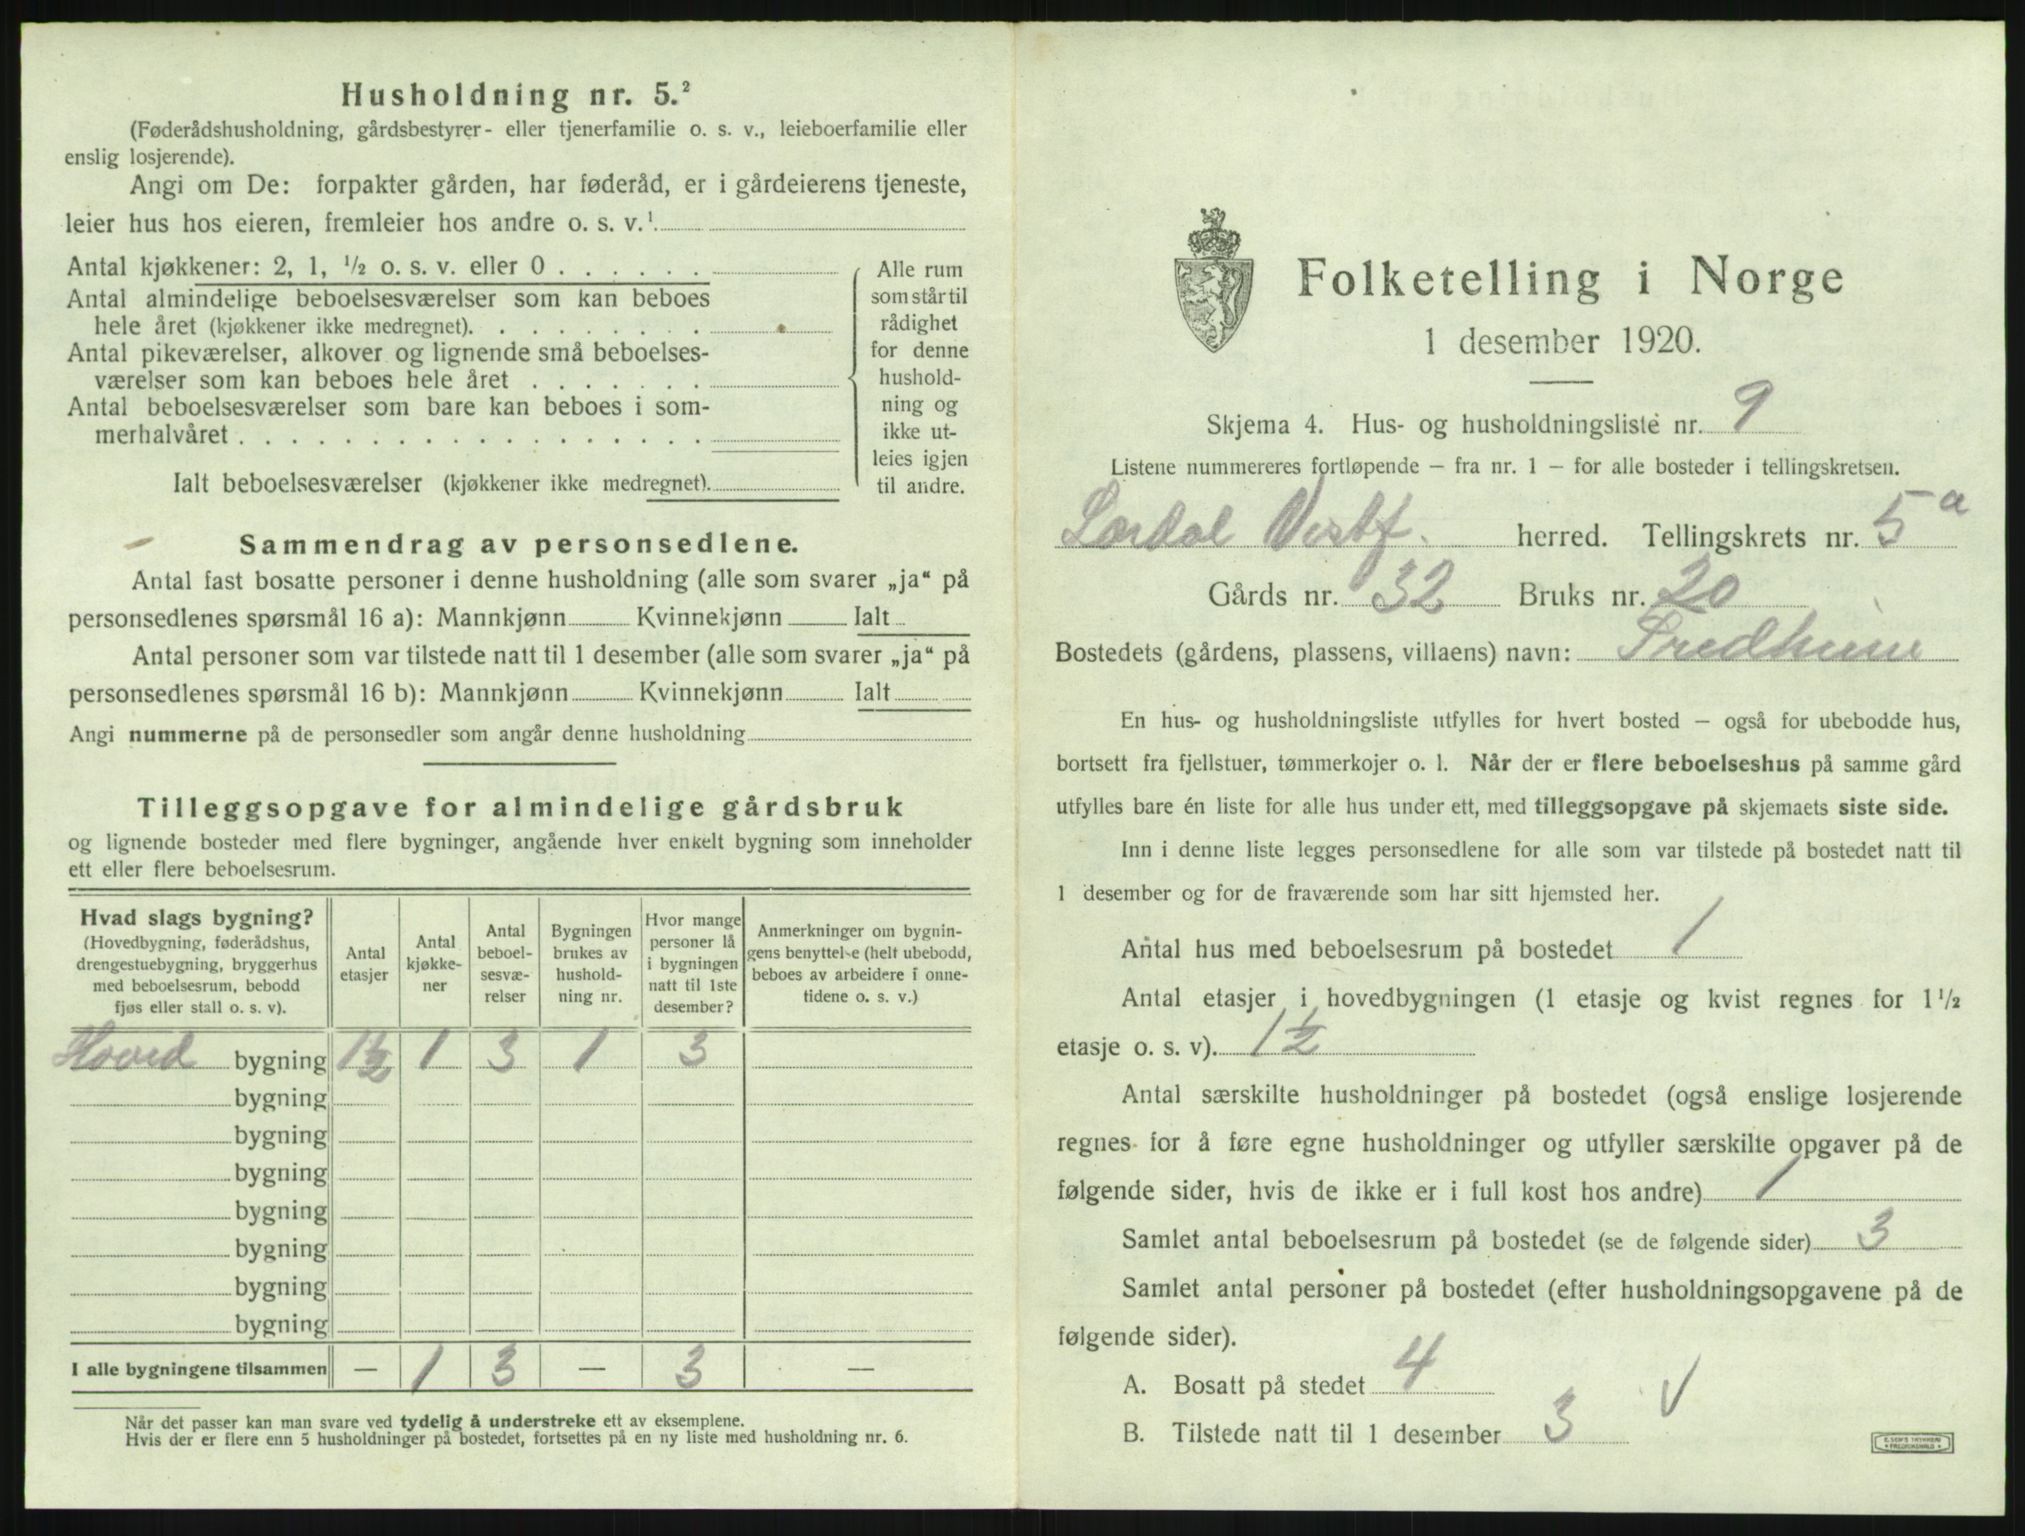 Husholdning nr. 5.²
(Føderådshusholdning, gårdsbestyrer- eller tjenerfamilie o. s. v., leieboerfamilie eller
enslig losjerende).
Angi om De: forpakter gården, har føderåd, er i gårdeierens tjeneste,
leier hus hos eieren, fremleier hos andre o. s. v.¹
Antal kjøkkener: 2, 1, ½ o. s. v. eller 0
Antal almindelige beboelsesværelser som kan beboes
hele året (kjøkkener ikke medregnet).
Antal pikeværelser, alkover og lignende små beboelses-
værelser som kan beboes hele året
Antal beboelsesværelser som bare kan beboes i som-
merhalvåret
Ialt beboelsesværelser (kjøkkener ikke medregnet).
Alle rum
som står til
rådighet
for denne
hushold-
ning og
ikke ut-
leies igjen
til andre.
Sammendrag av personsedlene.
Antal fast bosatte personer i denne husholdning (alle som svarer „ja“ på
personsedlenes spørsmål 16 a): Mannkjønn Kvinnekjønn Ialt
Antal personer som var tilstede natt til 1 desember (alle som svarer „ja“ på
personsedlenes spørsmål 16 b): Mannkjønn Kvinnekjønn Ialt
Angi nummerne på de personsedler som angår denne husholdning
Tilleggsopgave for almindelige gårdsbruk
og lignende bosteder med flere bygninger, angående hver enkelt bygning som inneholder
ett eller flere beboelsesrum.
Hvad slags bygning?
(Hovedbygning, føderådshus,
drengestuebygning, bryggerhus
med beboelsesrum, bebodd
fjøs eller stall o. s. v).
Antal
etasjer
Antal
kjøkke-
ner
Antal
beboel-
sesvæ-
relser
Bygningen
brukes av
hushold-
ning nr.
Hvor mange
personer lå
i bygningen
natt til 1ste
desember?
Anmerkninger om bygnin-
gens benyttelse (helt ubebodd,
beboes av arbeidere i onne-
tidene o. s. v.)
Hoved bygning 1½ 1 3 1 3
bygning
bygning
bygning
bygning
bygning
bygning
bygning
I alle bygningene tilsammen — 1 3 — 3 —
Når det passer kan man svare ved tydelig å understreke ett av eksemplene.
Hvis der er flere enn 5 husholdninger på bostedet, fortsettes på en ny liste med husholdning nr. 6.
Folketelling i Norge
1 desember 1920.
Skjema 4. Hus- og husholdningsliste nr. 9
Listene nummereres fortløpende — fra nr. 1 — for alle bosteder i tellingskretsen.
Lardal Vestf. herred. Tellingskrets nr. 5 a
Gårds nr. 32 Bruks nr. 20
Bostedets (gårdens, plassens, villaens) navn: Fredheim
En hus- og husholdningsliste utfylles for hvert bosted — også for ubebodde hus,
bortsett fra fjellstuer, tømmerkojer o. l. Når der er flere beboelseshus på samme gård
utfylles bare én liste for alle hus under ett, med tilleggsopgave på skjemaets siste side.
Inn i denne liste legges personsedlene for alle som var tilstede på bostedet natt til
1 desember og for de fraværende som har sitt hjemsted her.
Antal hus med beboelsesrum på bostedet 1
Antal etasjer i hovedbygningen (1 etasje og kvist regnes for 1½
etasje o. s. v). 1½
Antal særskilte husholdninger på bostedet (også enslige losjerende
regnes for å føre egne husholdninger og utfyller særskilte opgaver på de
følgende sider, hvis de ikke er i full kost hos andre) 1
Samlet antal beboelsesrum på bostedet (se de følgende sider) 3
Samlet antal personer på bostedet (efter husholdningsopgavene på de
følgende sider).
A. Bosatt på stedet 4
B. Tilstede natt til 1 desember 3 V